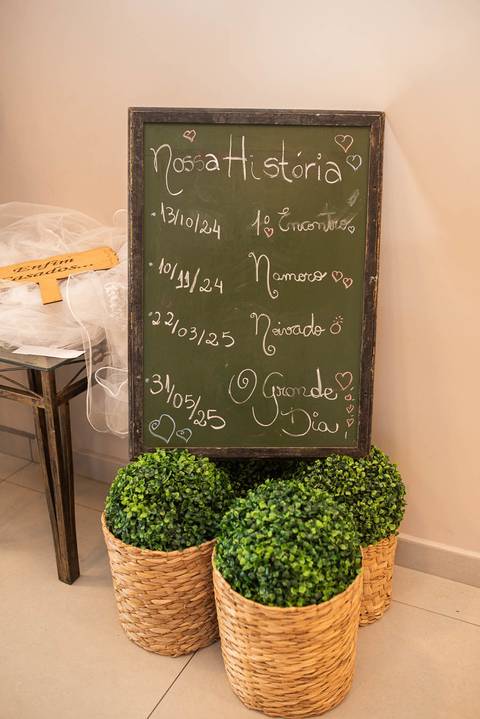 Nossa História
13/10/24 1º Encontro
10/11/24 Namoro
22/03/25 Noivado
31/05/25 O Grande
Dia!
Enfim
Casados...